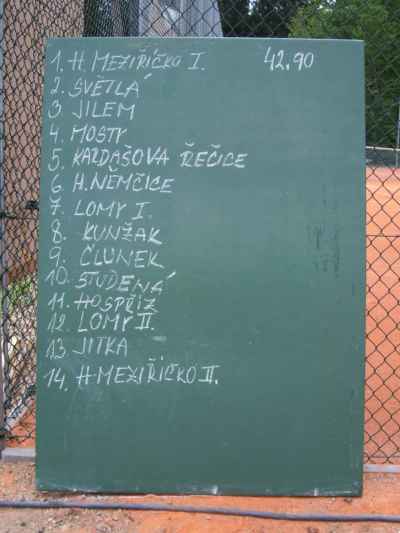 1. H. MEZIŘÍČKO I. 42,90
2. SVĚTLÁ
3 JILEM
4. MOSTY
5. KARDAŠOVA ŘEČICE
6. H. NĚMČICE
7. LOMY I.
8. KUNŽAK
9. ČLUNEK
10. STUDENÁ
11. HOSPŘÍZ
12. LOMY II.
13. JITKA
14. H MEZIŘÍČKO II.